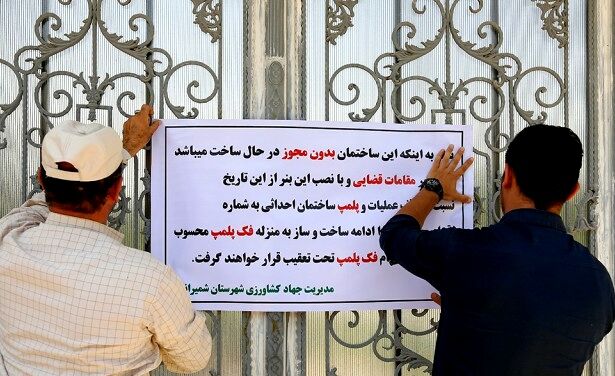 به اینکه این ساختمان بدون مجوز در حال ساخت میباشد
مقامات قضایی و با نصب این بنر از این تاریخ
عملیات و پلمپ ساختمان احداثی به شماره
ادامه ساخت و ساز به منزله فک پلمپ محسوب
فک پلمپ تحت تعقیب قرار خواهند گرفت.
مدیریت جهاد کشاورزی شهرستان